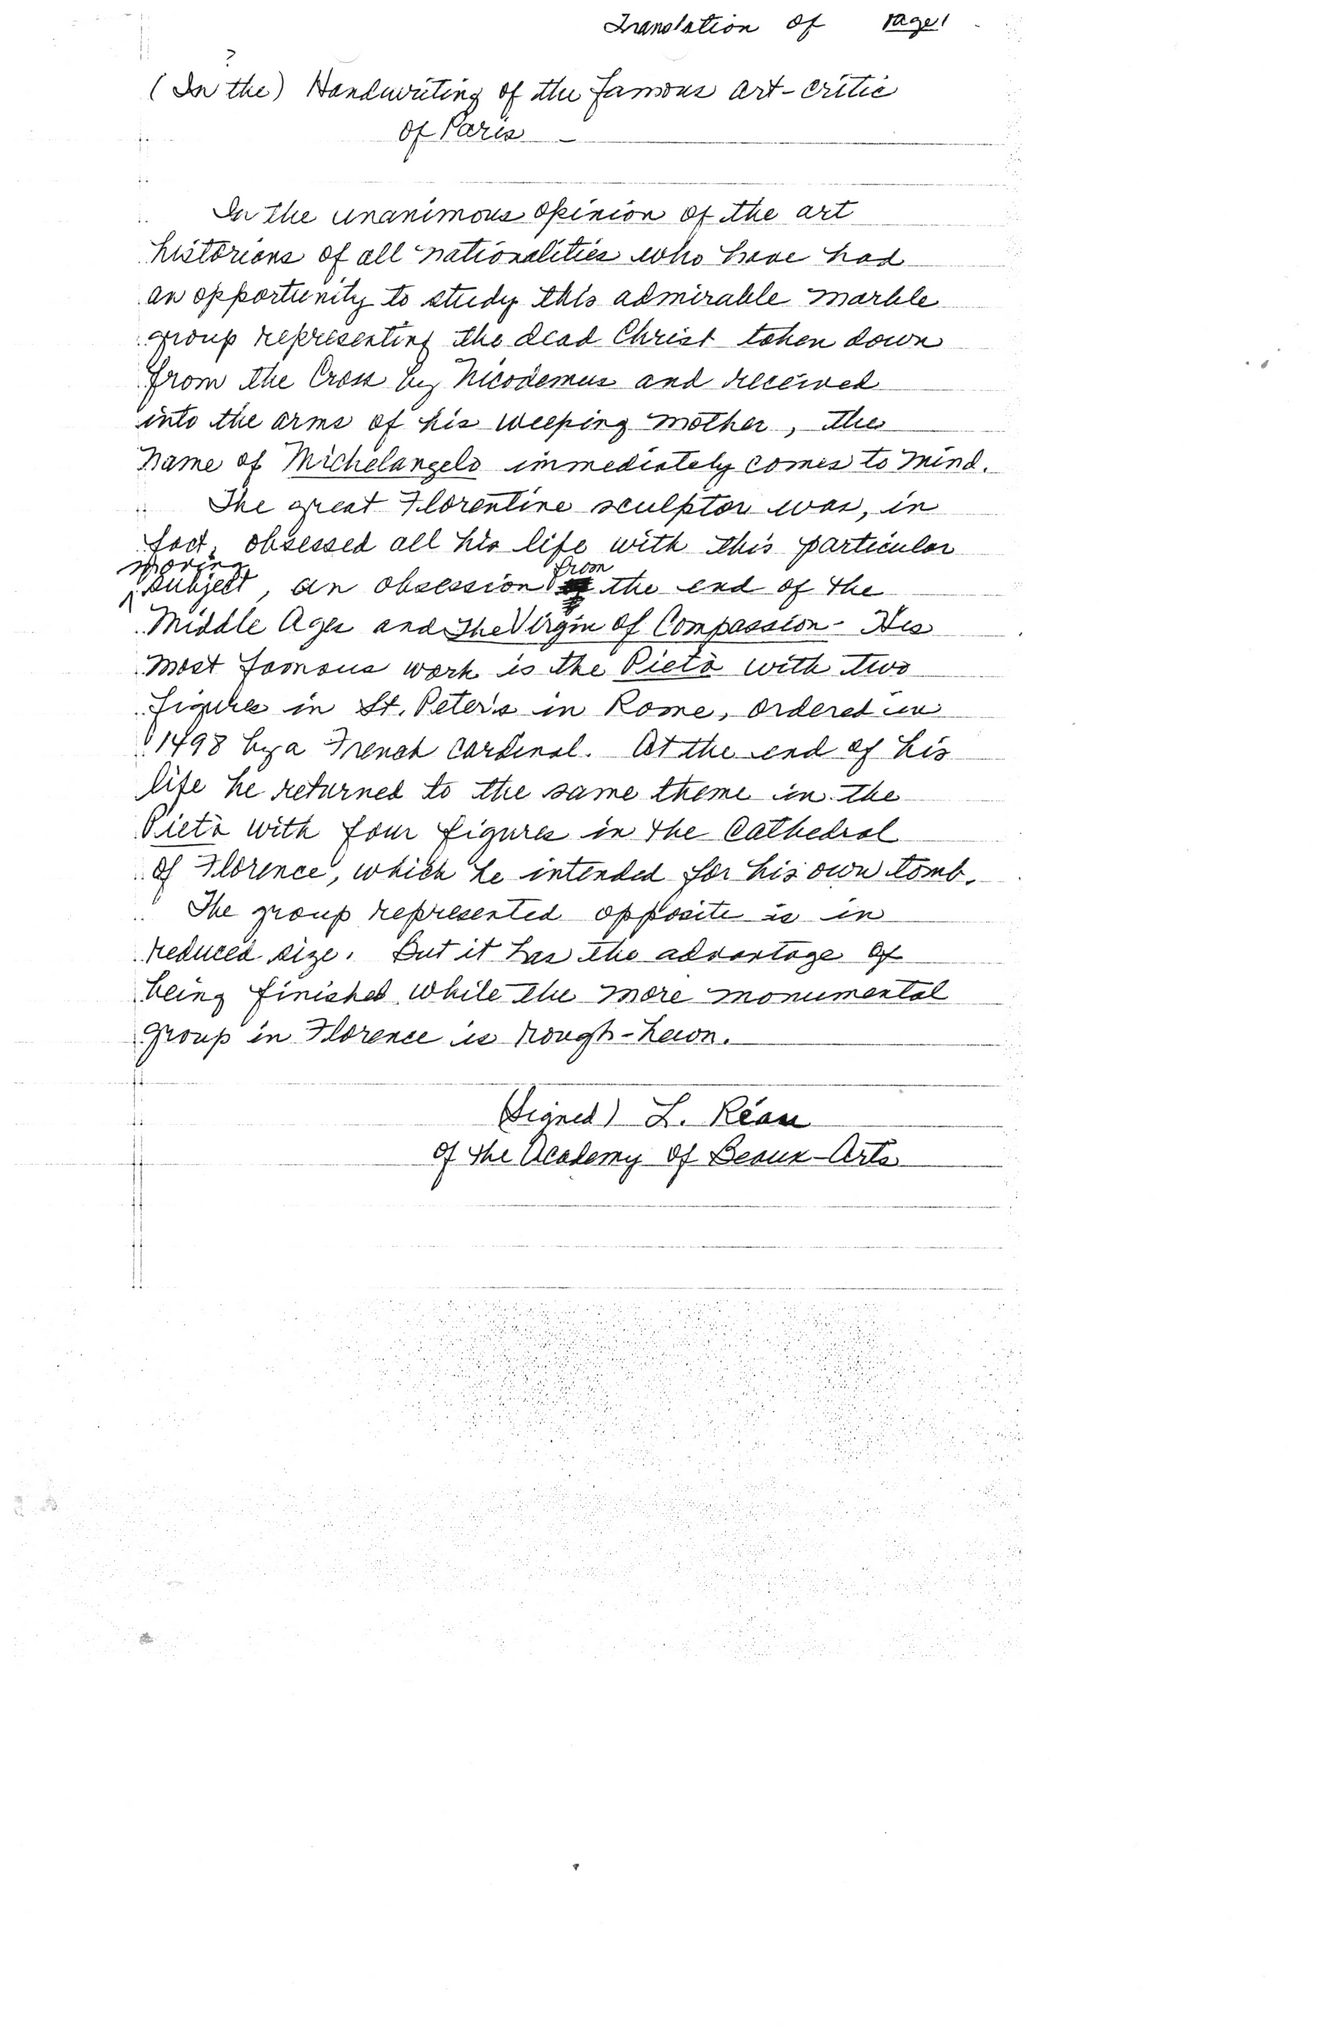 Translation of Page 1
?
(In the) Handwriting of the famous art-critic
of Paris –
In the unanimous opinion of the art
historians of all nationalities who have had
an opportunity to study this admirable marble
group representing the dead Christ taken down
from the Cross by Nicodemus and received
into the arms of his weeping mother, the
name of Michelangelo immediately comes to mind.
The great Florentine sculptor was, in
fact, obsessed all his life with this particular
moving
subject, an obsession from the end of the
Middle Ages and The Virgin of Compassion - His
most famous work is the Pietà with two
figures in St. Peter's in Rome, ordered in
1498 by a French cardinal. At the end of his
life he returned to the same theme in the
Pietà with four figures in the Cathedral
of Florence, which he intended for his own tomb.
The group represented opposite is in
reduced size. But it has the advantage of
being finished while the more monumental
group in Florence is rough-hewn.
(Signed) L. Réau
of the Academy of Beaux-Arts